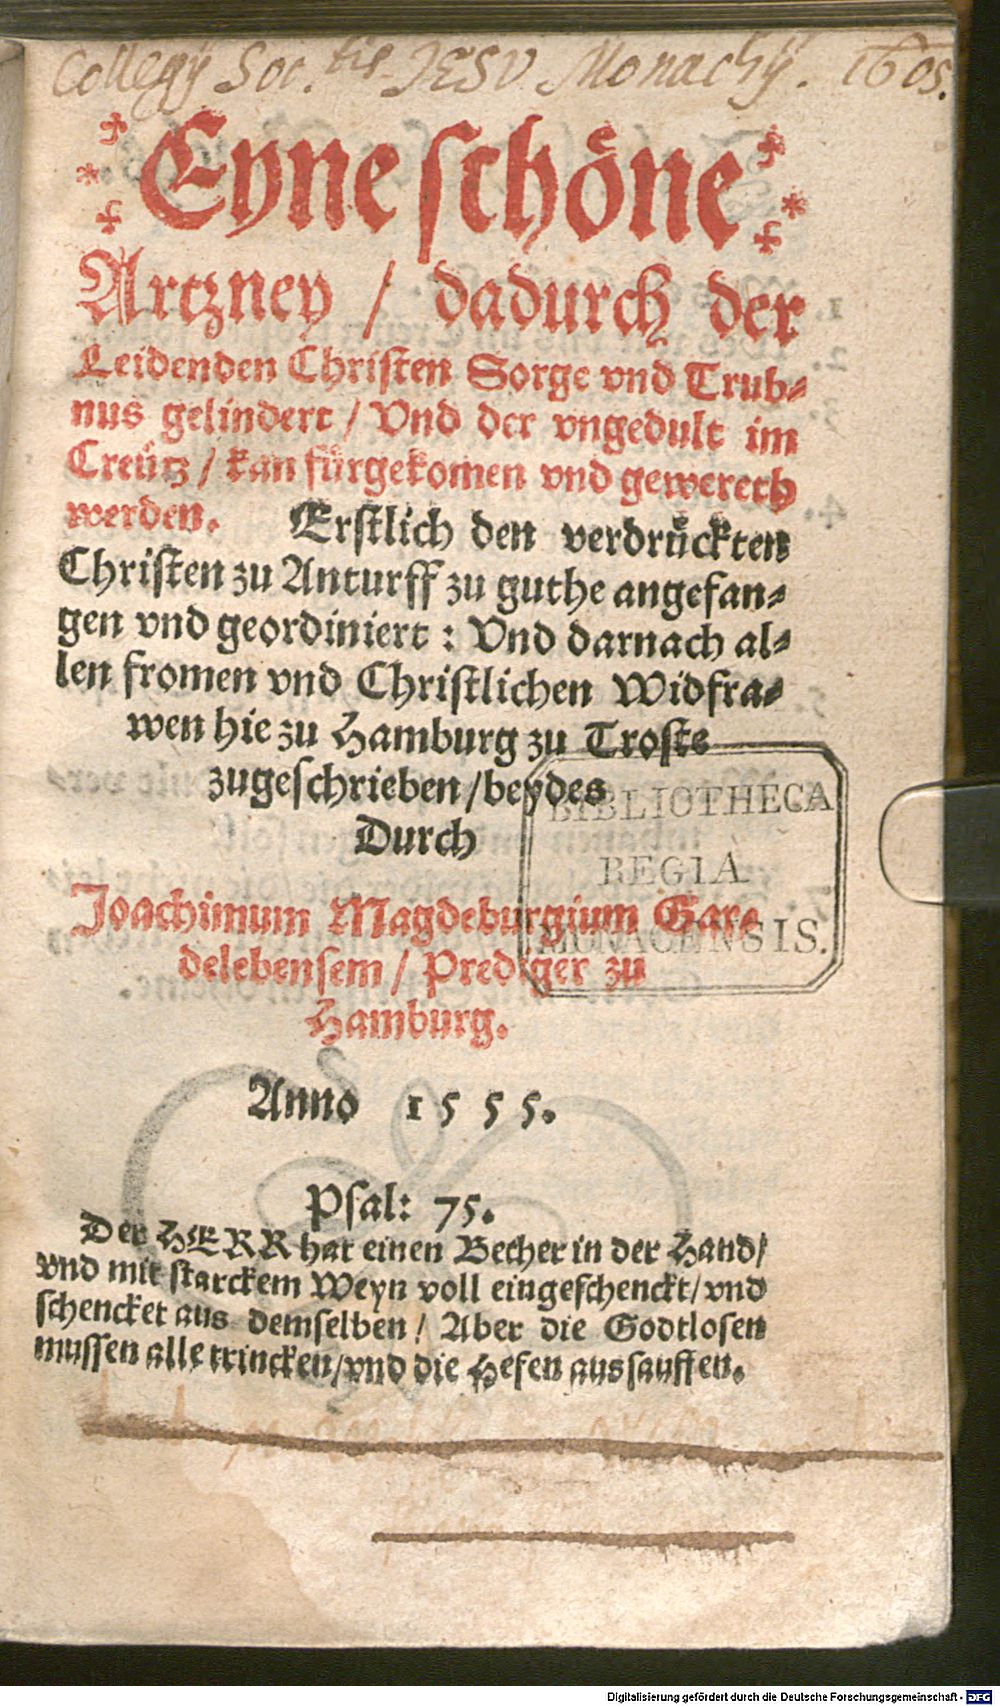 Collegÿ Soc.tis JESV Monachÿ. 1605.
Eyne schöne
Artzney / dadurch der
Leidenden Christen Sorge vnd Trub-
nus gelindert / Vnd der vngedult im
Creütz / kan fürgekomen vnd gewerech
werden. Erstlich den verdrückten
Christen zu Anturff zu guthe angefan-
gen vnd geordiniert : Vnd darnach al-
len fromen vnd Christlichen Widfra-
wen hie zu Hamburg zu Troste
zugeschrieben / beydes
Durch
Joachimum Magdeburgium Gar-
delebensem / Prediger zu
Hamburg.
BIBLIOTHECA
REGIA
MONACENSIS.
Anno 1555.
Psal: 75.
Der HERR hat einen Becher in der Hand /
vnd mit starckem Weyn voll eingeschenckt / vnd
schencket aus demselben / Aber die Godtlosen
mussen alle trincken / vnd die Hefen aussauffen.
Digitalisierung gefördert durch die Deutsche Forschungsgemeinschaft - DFG